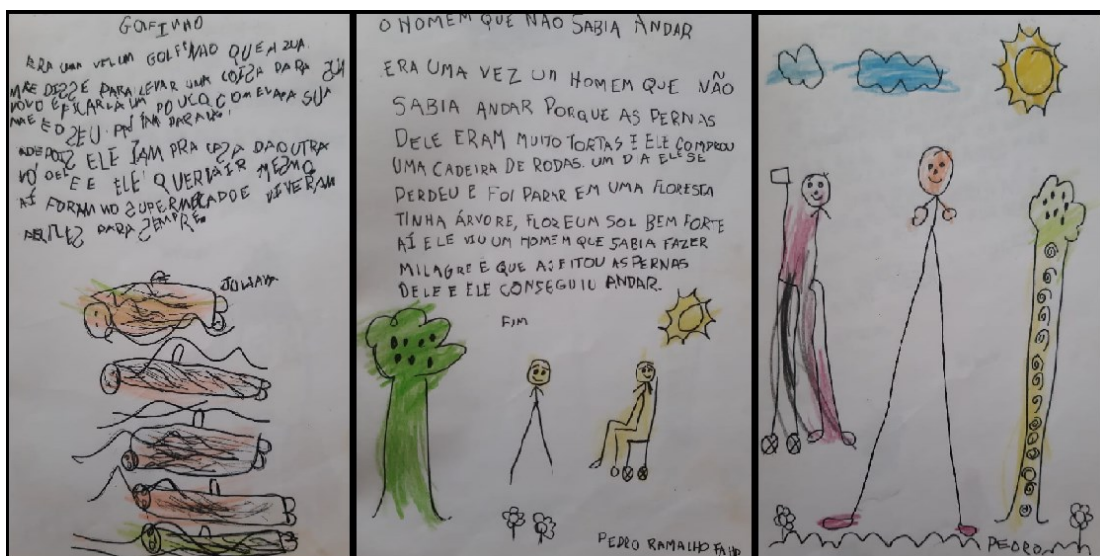 GOLFINHO
ERA UMA VEZ UM GOLFINHO QUE A ZUA
MÃE DISSE PARA LEVAR UMA COIZA PARA
VOVO E FICARIA UM POUCO COM
MÃE E O SEU
ELE IAM PRA CAZA DA OUTRA
VÓ DELE E ELE QUERIA IR MESMO
AÍ FORAM NO SUPERMECADO E VIVERAM
PARA SEMPRE
JULIANA
O HOMEM QUE NÃO SABIA ANDAR
ERA UMA VEZ UM HOMEM QUE NÃO
SABIA ANDAR PORQUE AS PERNAS
DELE ERAM MUITO TORTAS E ELE COMPROU
UMA CADEIRA DE RODAS. UM DIA ELE SE
PERDEU E FOI PARAR EM UMA FLORESTA
TINHA ÁRVORE, FLOR E UM SOL BEM FORTE
AÍ ELE VIU UM HOMEM QUE SABIA FAZER
MILAGRE E QUE AJEITOU AS PERNAS
DELE E ELE CONSEGUIU ANDAR.
FIM
PEDRO RAMALHO
PEDRO